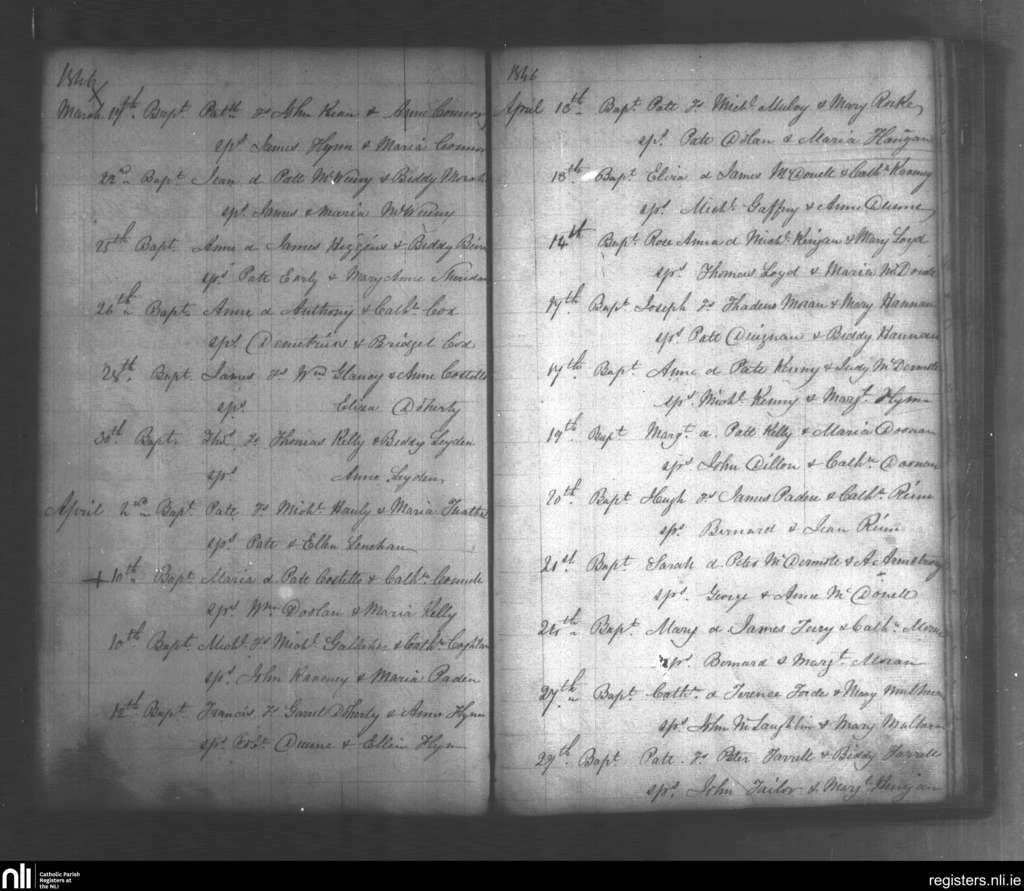 1846
March 19th Bapt Patk fs John Kean & Anne Connor
spd James Flynn & Maria Connor
22nd Bapt Jean d Patt McWeeny & Biddy Moran
spd James & Maria McWeeny
25th Bapt Anne d James Higgins & Biddy Beirn
spd Patt Early & Mary Anne
26th Bapt Anne d Anthony & Cathn Cox
spd Demetrius & Bridget Cox
28th Bapt James fs Wm Glancy & Anne Costello
spd Eliza Doherty
30th Bapt Thos fs Thomas Kelly & Biddy Leyden
spd Anne Leyden
April 2nd Bapt Patt fs Michl Hanly & Maria
spd Patt & Ellen Lenehan
10th Bapt Maria d Patt Costello & Cathn
spd Wm Doolan & Maria Kelly
10th Bapt Michl fs Michl & Cathn Coghlan
spd John Kaveny & Maria Paden
12th Bapt Francis fs Garret Doherty & Anne Flynn
spd Robt Duune & Ellen Flynn
1846
April 13th Bapt Patt fs Michl Mulvy & Mary Rorke
spd Patt Dolan & Maria
13th Bapt Eliza d James McDonell & Cathn Kaveny
spd Michl Gaffney & Anne Duune
14th Bapt Rose Anna d Michl & Mary Loyd
spd Thomas Loyd & Maria
17th Bapt Joseph fs Thadeus Moran & Mary Hannan
spd Patt Duignan & Biddy Hannan
17th Bapt Anne d Patt Kenny & Judy McDermott
spd Michl Kenny & Margt Flynn
19th Bapt Margt d Patt Kelly & Maria Doonan
spd John Dillon & Cathn Doonan
20th Bapt Hugh fs James Paden & Cathn Reinn
spd Bernard & Jean Reinn
21st Bapt Sarah d Peter McDermott & A Armstrong
spd George & Anne McDonell
Bapt Mary d James Terry & Cathn
spd Bernard & Margt Moran
27th Bapt Cathn d Terence Forde & Mary
spd John McLaughlin & Mary
29th Bapt Patt fs Peter Farrell & Biddy Farrell
spd John Tailor & Margt
nli
Catholic Parish
Registers at
the NLI
registers.nli.ie